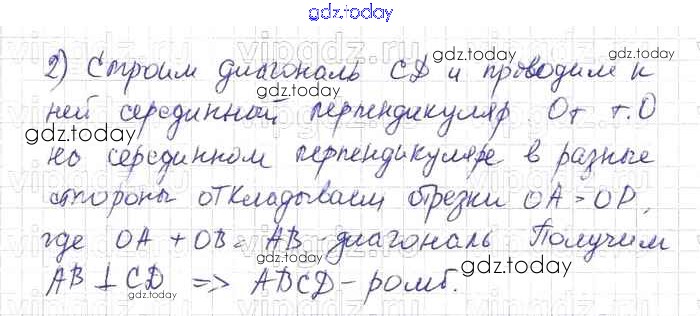 gdz.today
2) Строим диагональ CD и проводим к
ней серединный перпендикуляр. От т.О
на серединном перпендикуляре в разные
стороны откладываем отрезки OA = OD,
где OA + OB = AB - диагональ Получим
AB ⊥ CD => ABCD - ромб.
gdz.today
gdz.today
gdz.today
gdz.today
gdz.today
gdz.today
gdz.today
gdz.today